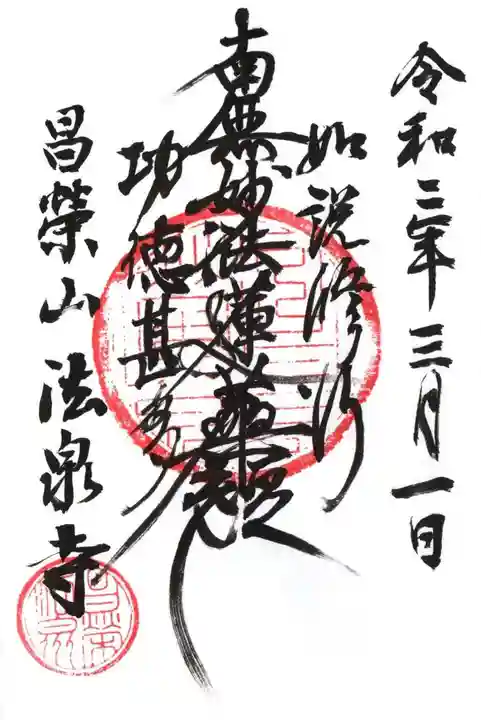 令和三年三月一日
如説修行
南無妙法蓮華經
功徳甚多
昌榮山法泉寺